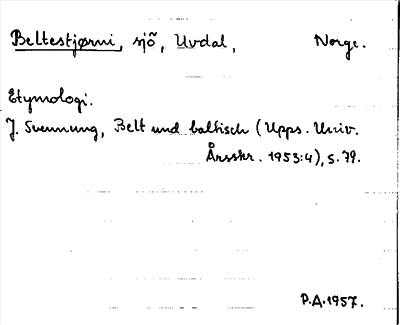 Beltestjørni, sjö, Uvdal, Norge.
Etymologi.
J. Svennung, Belt und baltisch (Upps. Univ.
Årsskr. 1953:4), s. 79.
P.A. 1957.